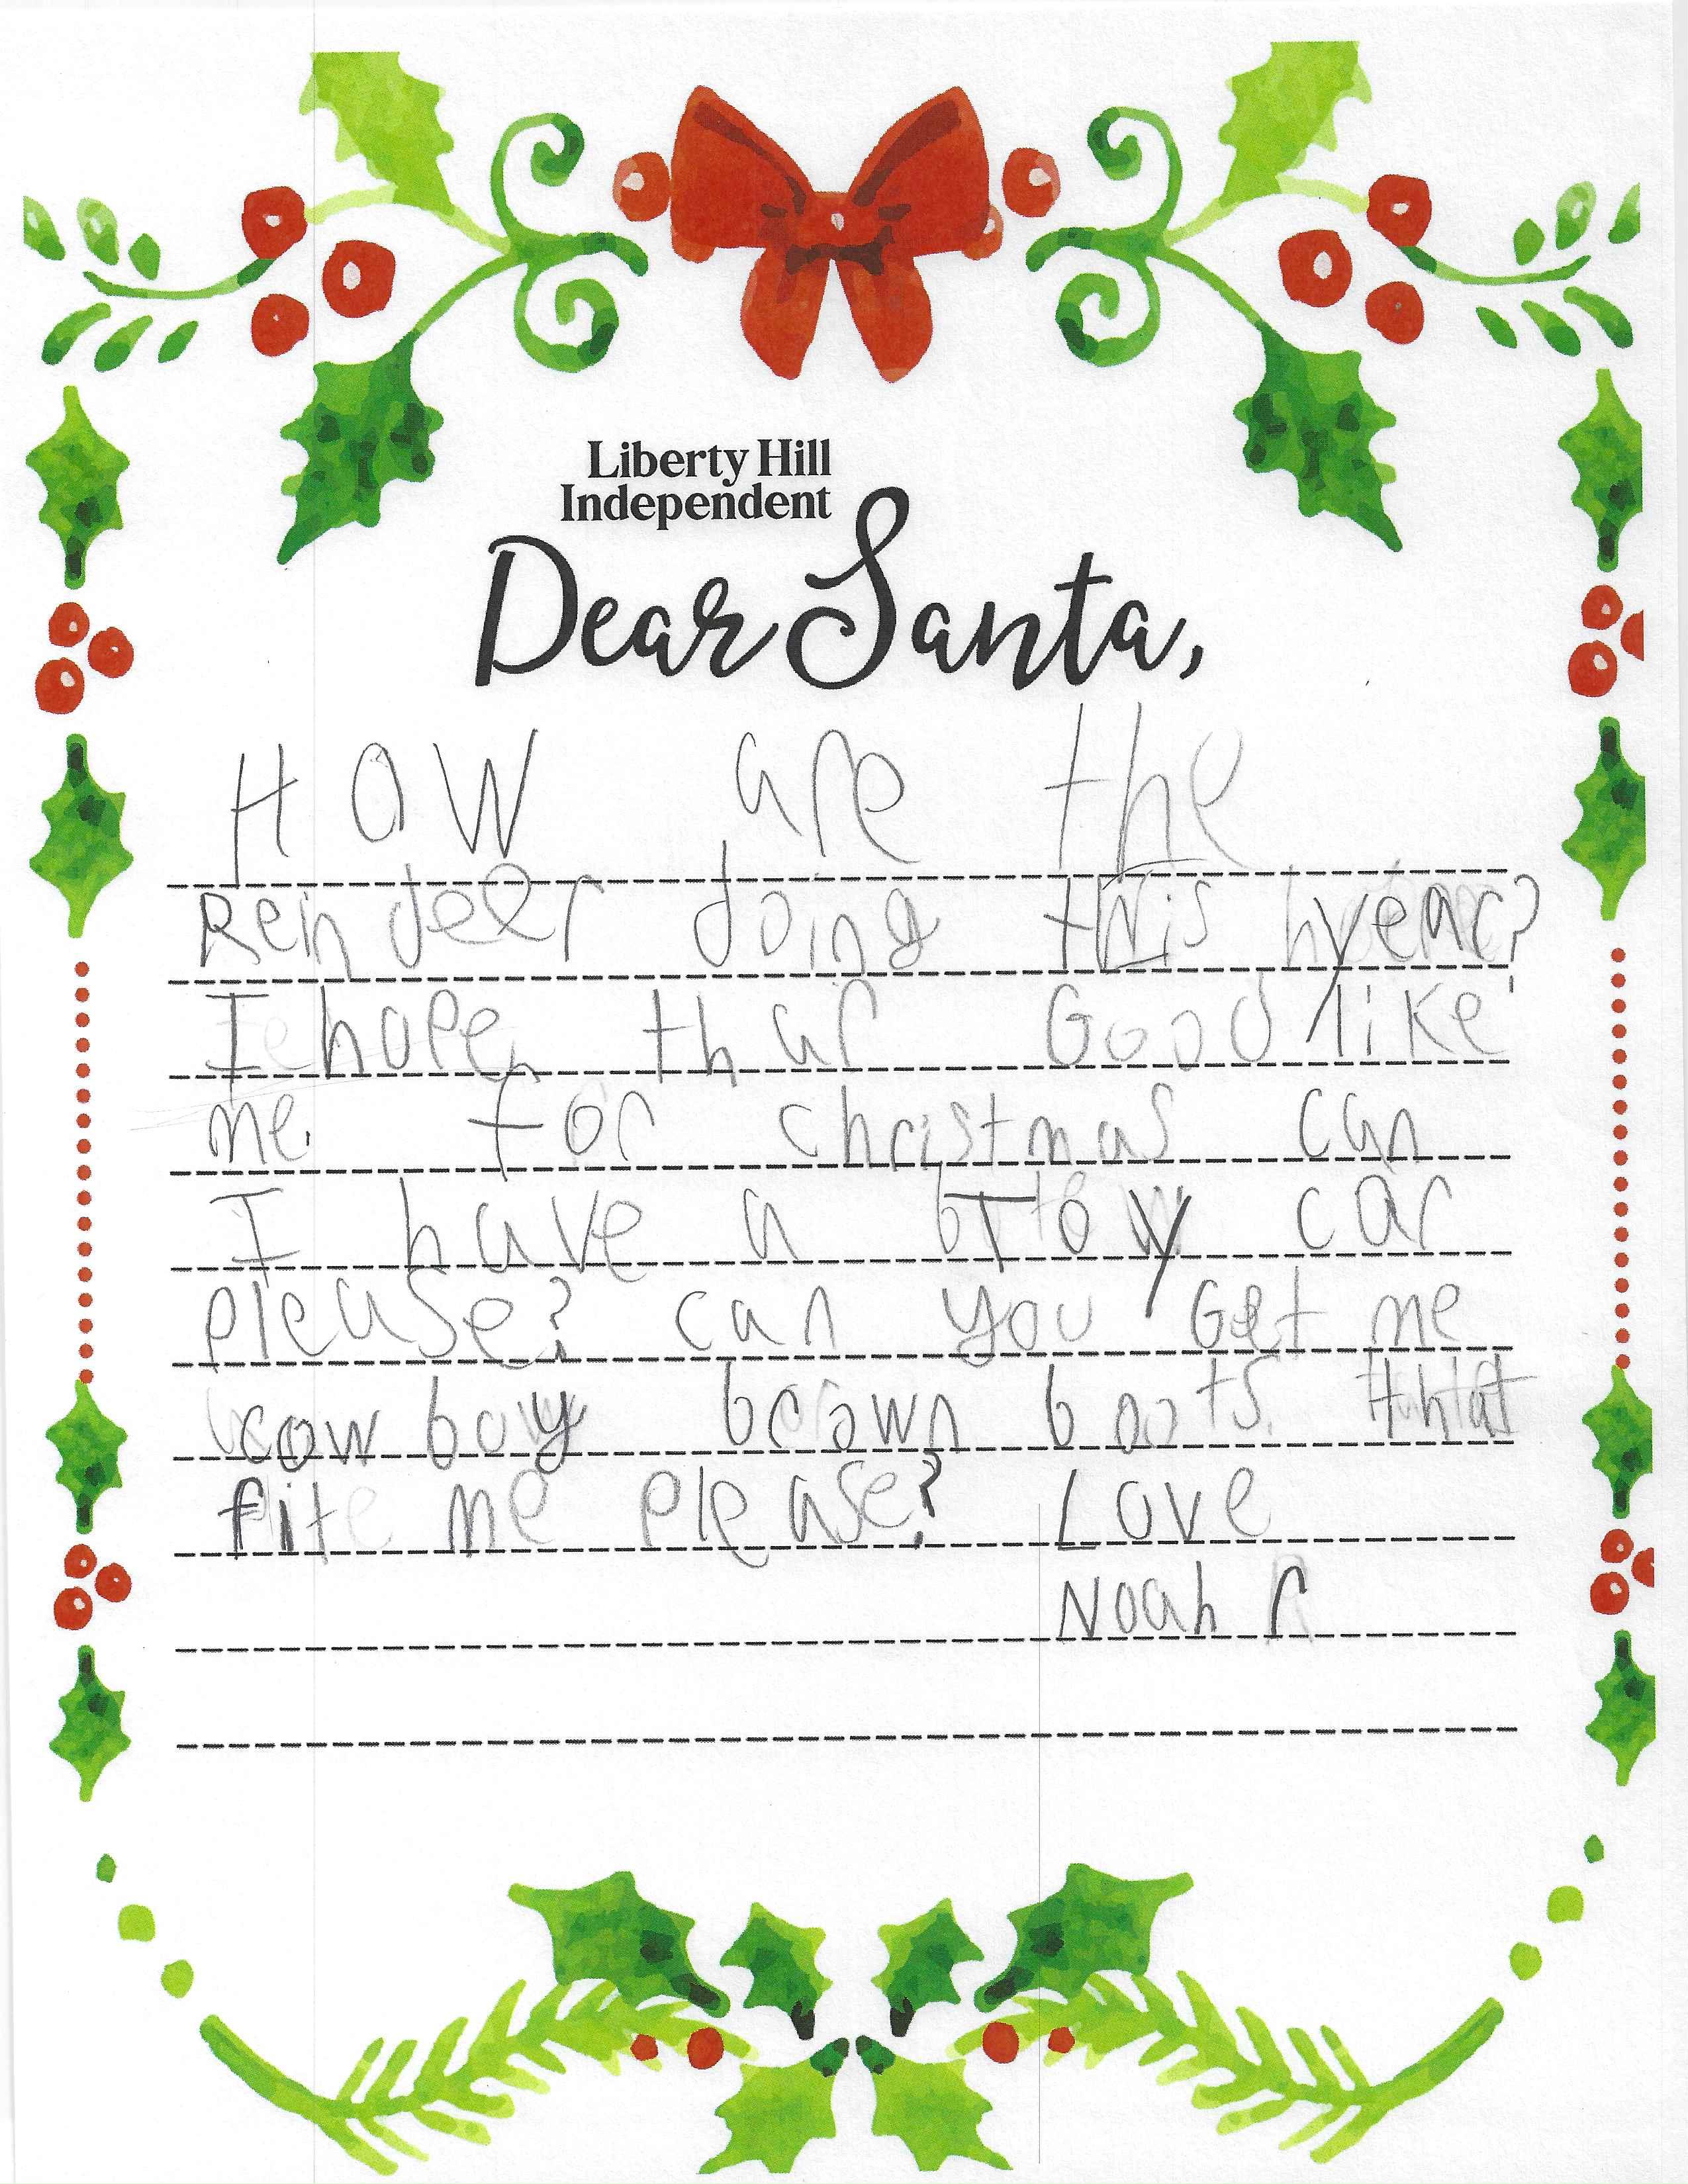 Liberty Hill
Independent
Dear Santa,
How are the
Reindeer doing this year?
I hope thar Good like
me. for christmas can
I have a Toy car
please? can you Get me
cow boy brown boots that
fite me please? Love
Noah r